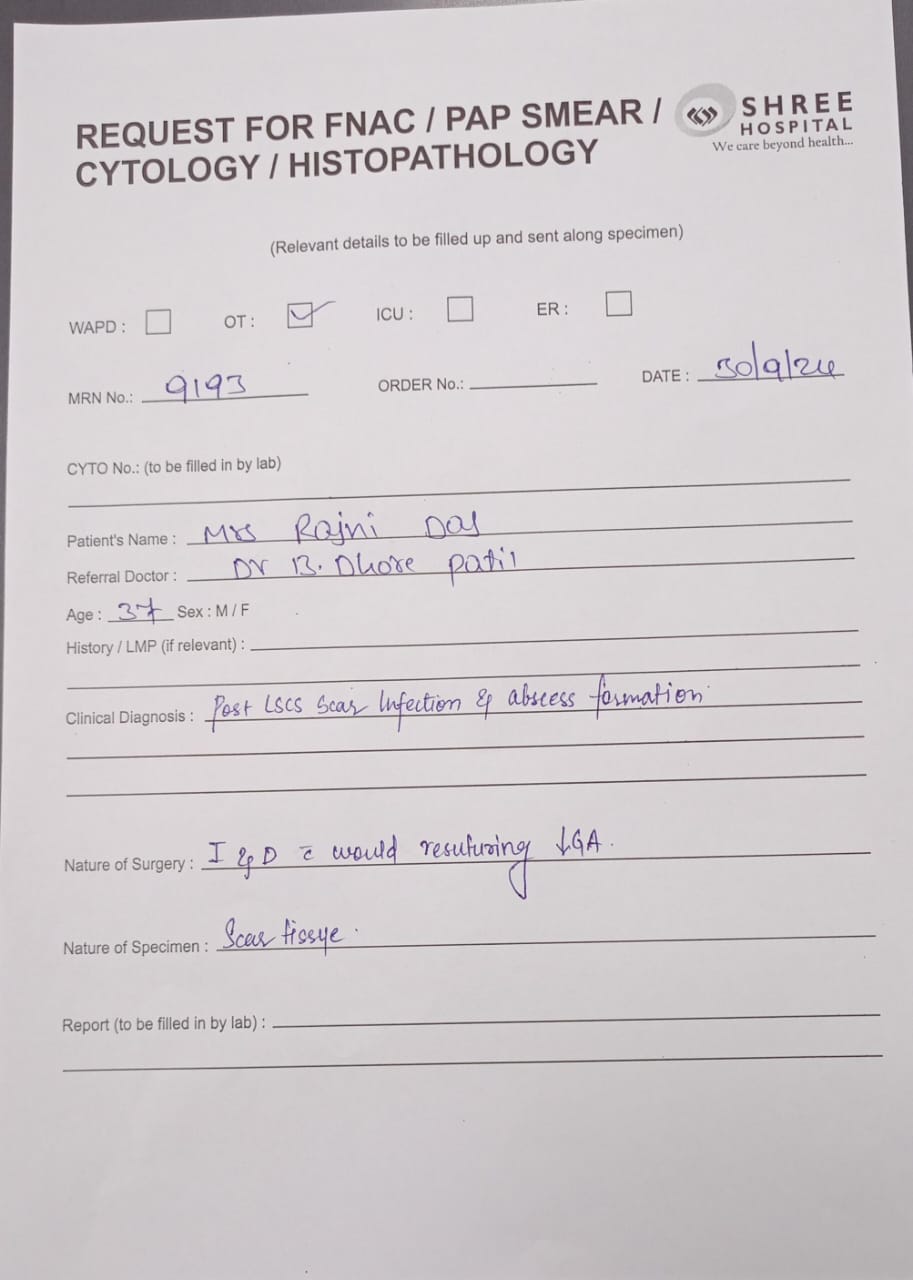 REQUEST FOR FNAC / PAP SMEAR /
CYTOLOGY / HISTOPATHOLOGY
SHREE
HOSPITAL
We care beyond health...
(Relevant details to be filled up and sent along specimen)
WAPD : OT : ICU : ER :
MRN No.: 9193 ORDER No.: DATE : 30/9/24
CYTO No.: (to be filled in by lab)
Patient's Name : Mrs Rajni Das
Referral Doctor : Dr B. Dhore patil
Age : 37 Sex : M / F
History / LMP (if relevant) :
Clinical Diagnosis : Post LSCS Scar Infection & abscess formation
Nature of Surgery : I & D c̄ would resuturing ↓GA.
Nature of Specimen : Scar tissye.
Report (to be filled in by lab) :